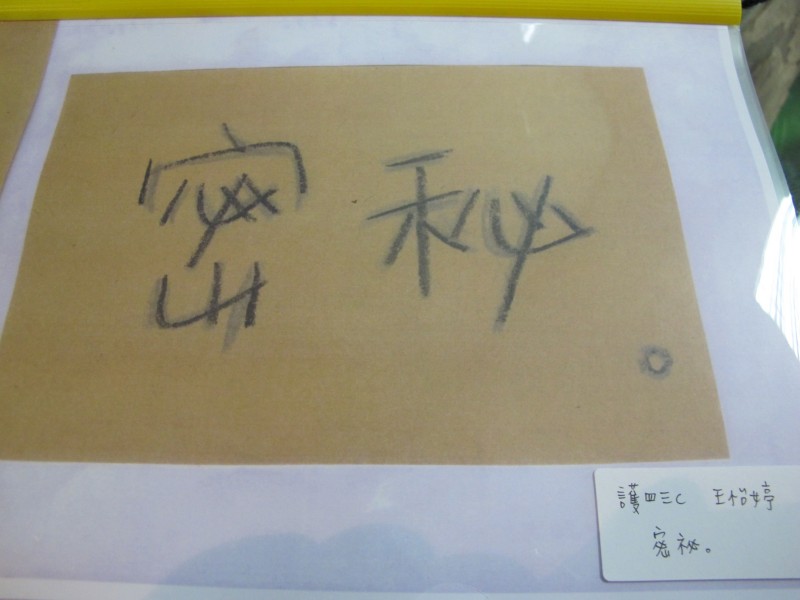 密秘。
護四三C 王怡婷
密祕。